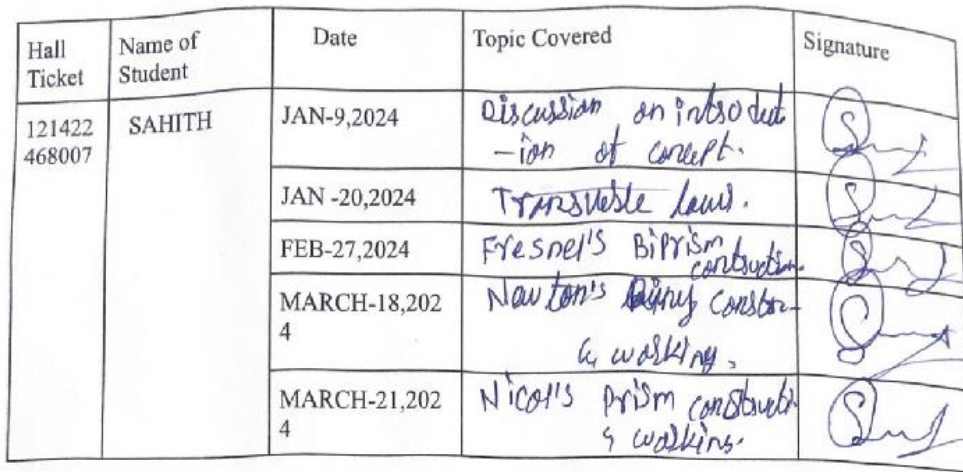 Hall Ticket
Name of Student
Date
Topic Covered
Signature
121422
468007
SAHITH
JAN-9,2024
Discussion on introduct
-ion of concept.
JAN -20,2024
Transveste laws.
FEB-27,2024
Fresnel's BiPrism
contruction
MARCH-18,202
4
Newton's Ring constr-
& working.
MARCH-21,202
4
Nicol's Prism constructi
& working.